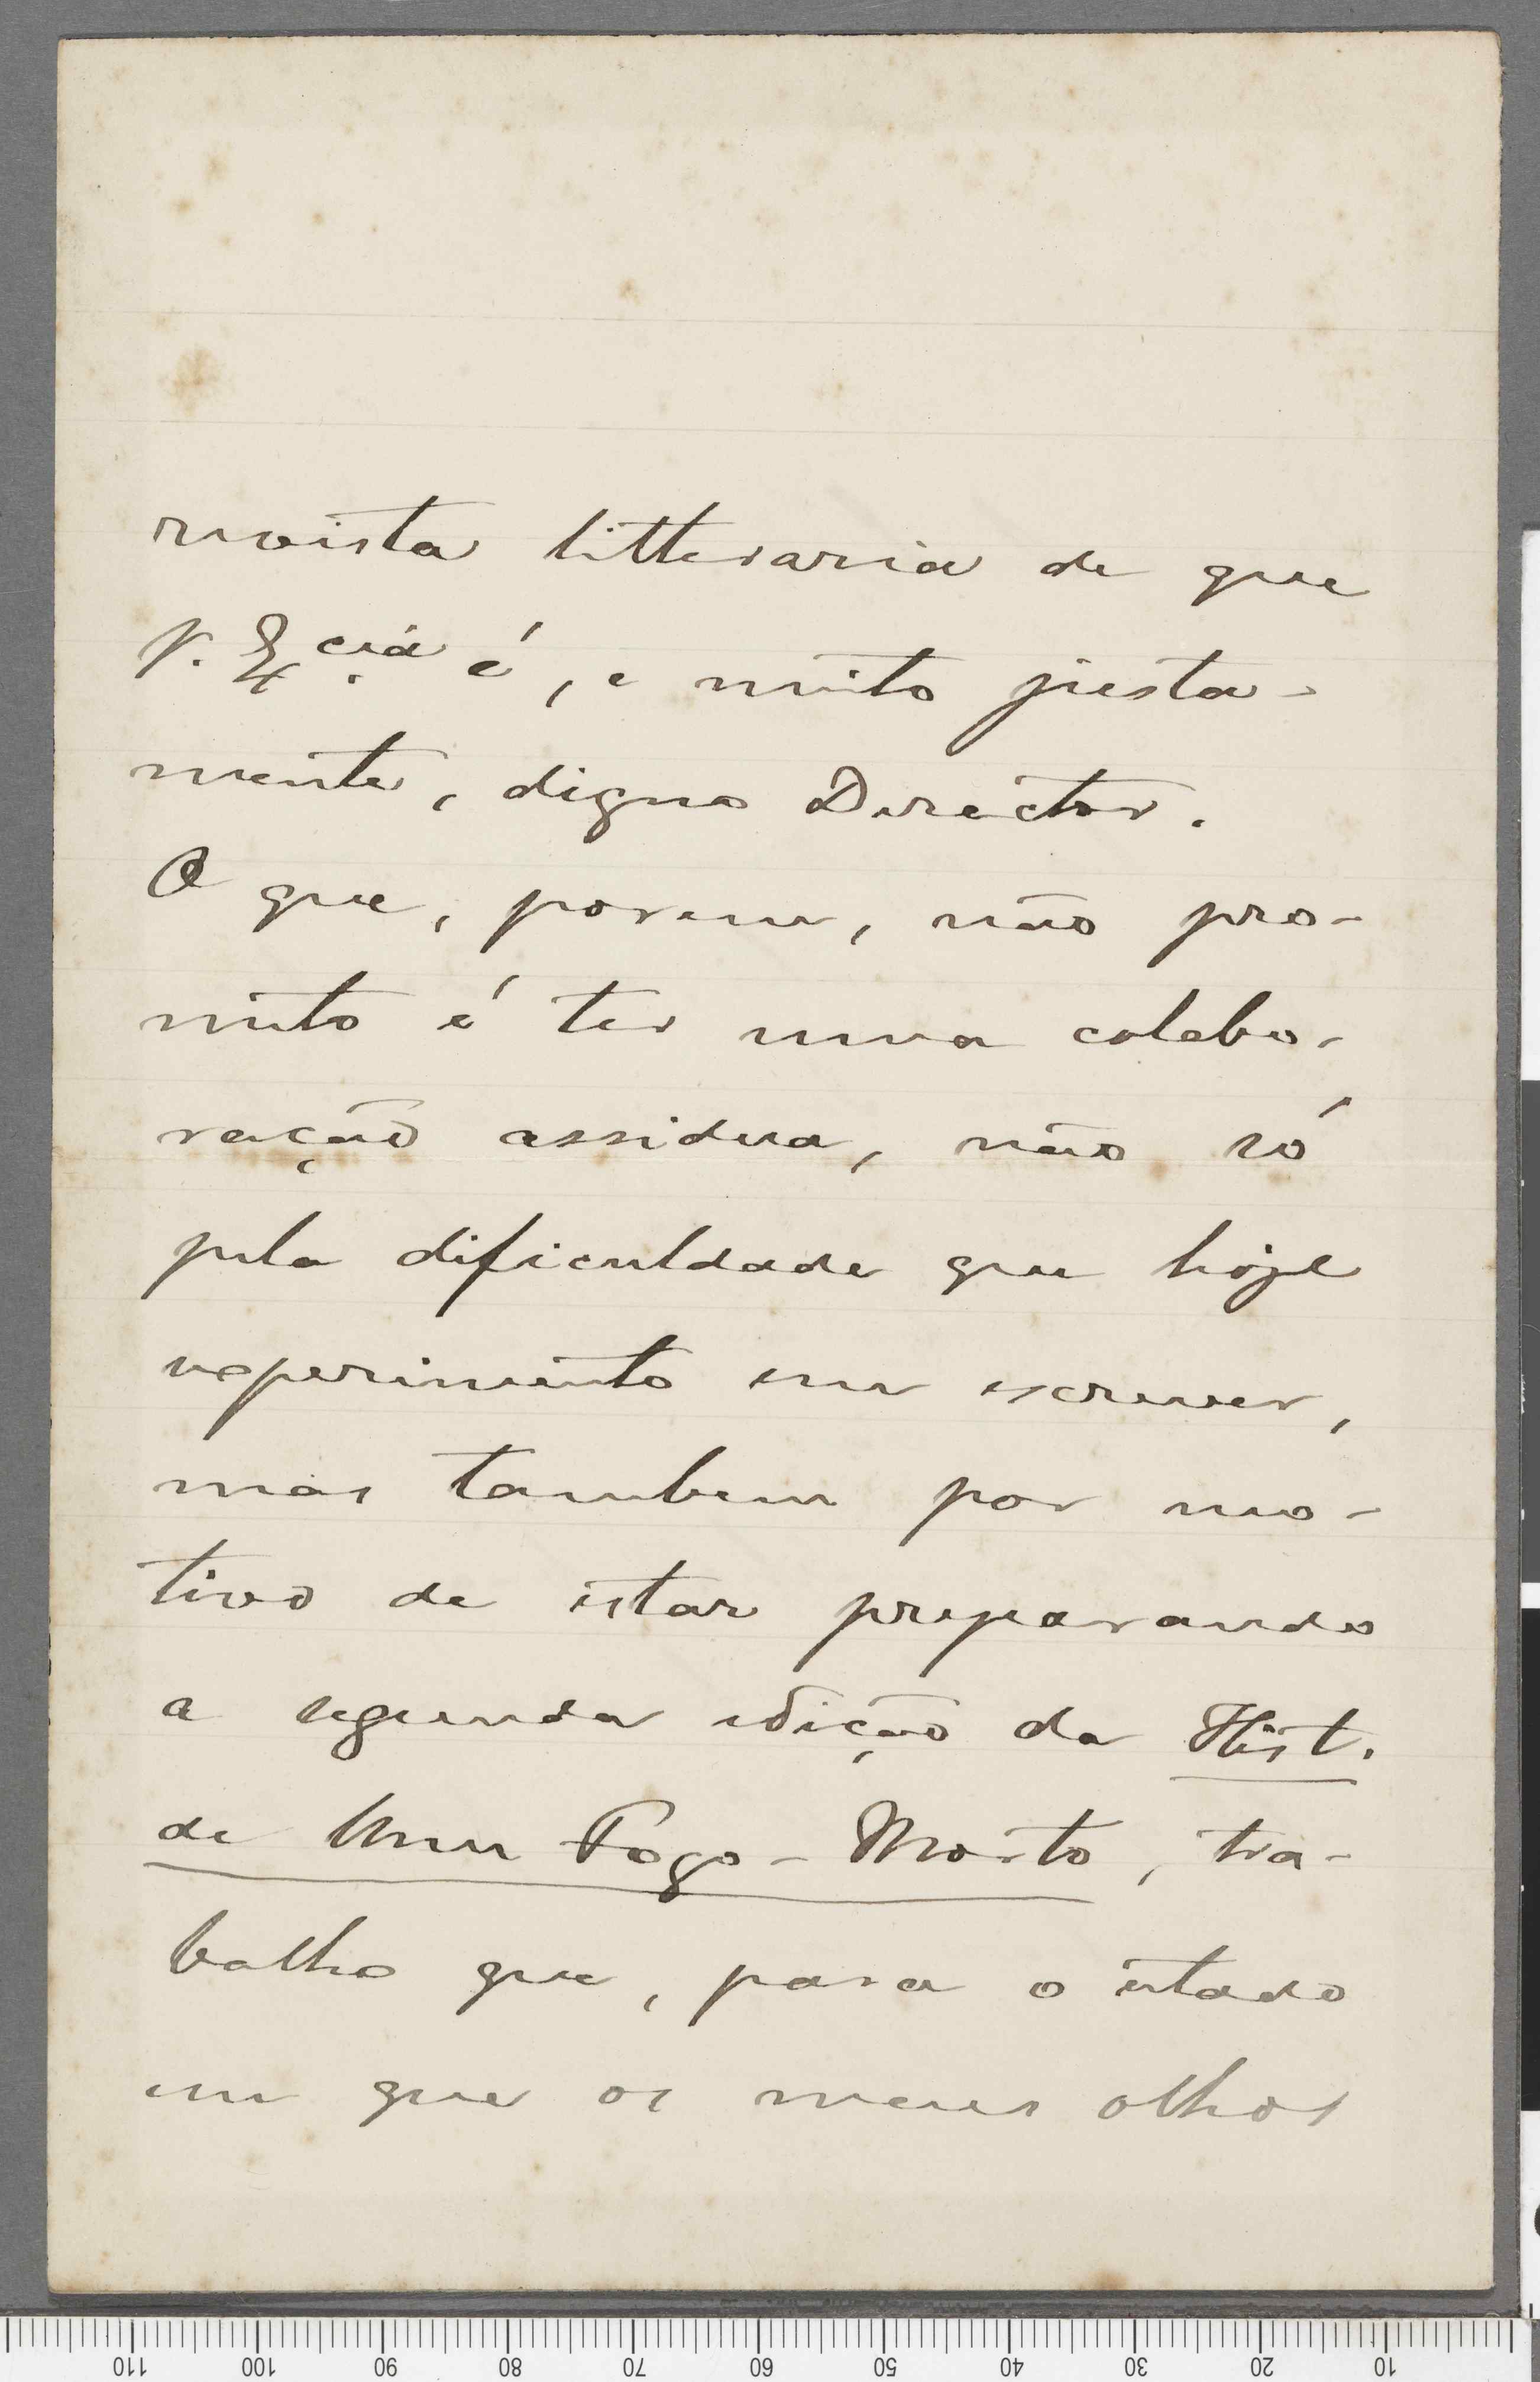 revista litteraria de que
V. Ex.cia é, e muito justa-
mente, digno Director.
O que, porem, não pro-
mito é ter uma colabo-
ração assidua, não só
pela dificuldade que hoje
experimento em escrever,
mas tambem por mo-
tivo de estar preparando
a segunda edição da Hist.
de Um Fogo-Morto, tra-
balho que, para o estado
em que os meus olhos
110 100 90 80 70 60 50 40 30 20 10